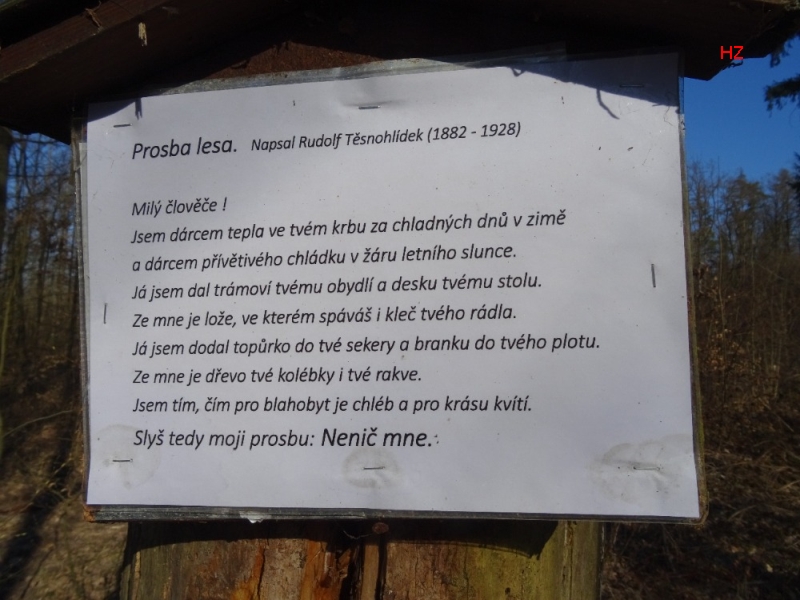 HZ
Prosba lesa. Napsal Rudolf Těsnohlídek (1882 - 1928)
Milý člověče !
Jsem dárcem tepla ve tvém krbu za chladných dnů v zimě
a dárcem přívětivého chládku v žáru letního slunce.
Já jsem dal trámoví tvému obydlí a desku tvému stolu.
Ze mne je lože, ve kterém spáváš i kleč tvého rádla.
Já jsem dodal topůrko do tvé sekery a branku do tvého plotu.
Ze mne je dřevo tvé kolébky i tvé rakve.
Jsem tím, čím pro blahobyt je chléb a pro krásu kvítí.
Slyš tedy moji prosbu: Nenič mne.